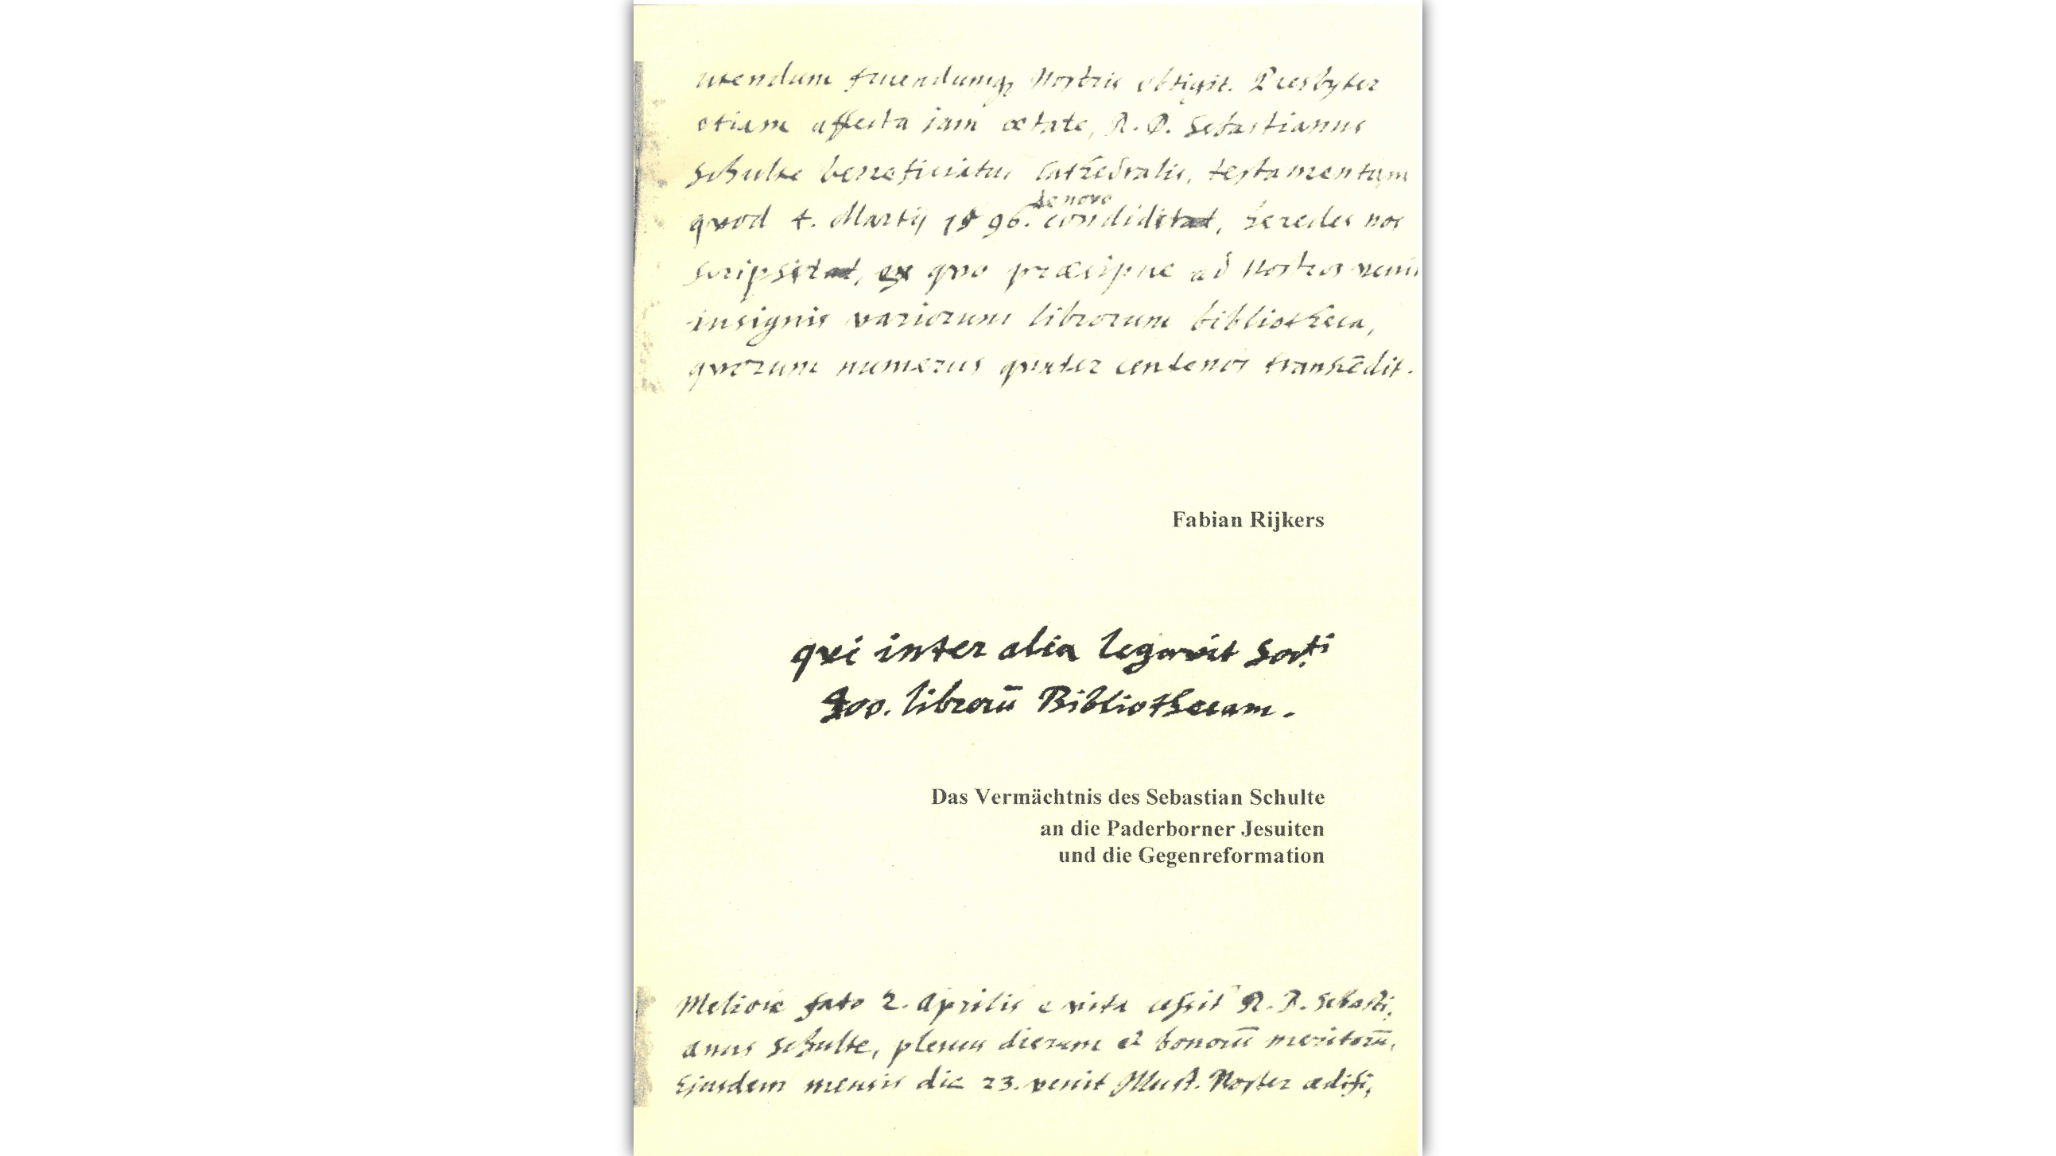 utendum fruendumq, Nostris obtigit. Presbyter
etiam affecta iam ætate, R. D. Sebastianus
Schulte beneficiatus Cathedralis, testamentum
denovo
quod 4. Martij 1596. condidit, heredes nos
scripsit, ex quo præcipue ad Nostros venit
insignis variorum librorum bibliotheca,
quorum numerus quater centenos transcēdit.
Fabian Rijkers
qui inter alia legavit Socti
400. librorū Bibliothecam.
Das Vermächtnis des Sebastian Schulte
an die Paderborner Jesuiten
und die Gegenreformation
Meliore fato 2. Aprilis e vita cessit R. D. Sebasti,
anus Schulte, plenus dierum et bonorū meritorū,
Ejusdem mensis die 23. venit Illust. Noster ædifi,